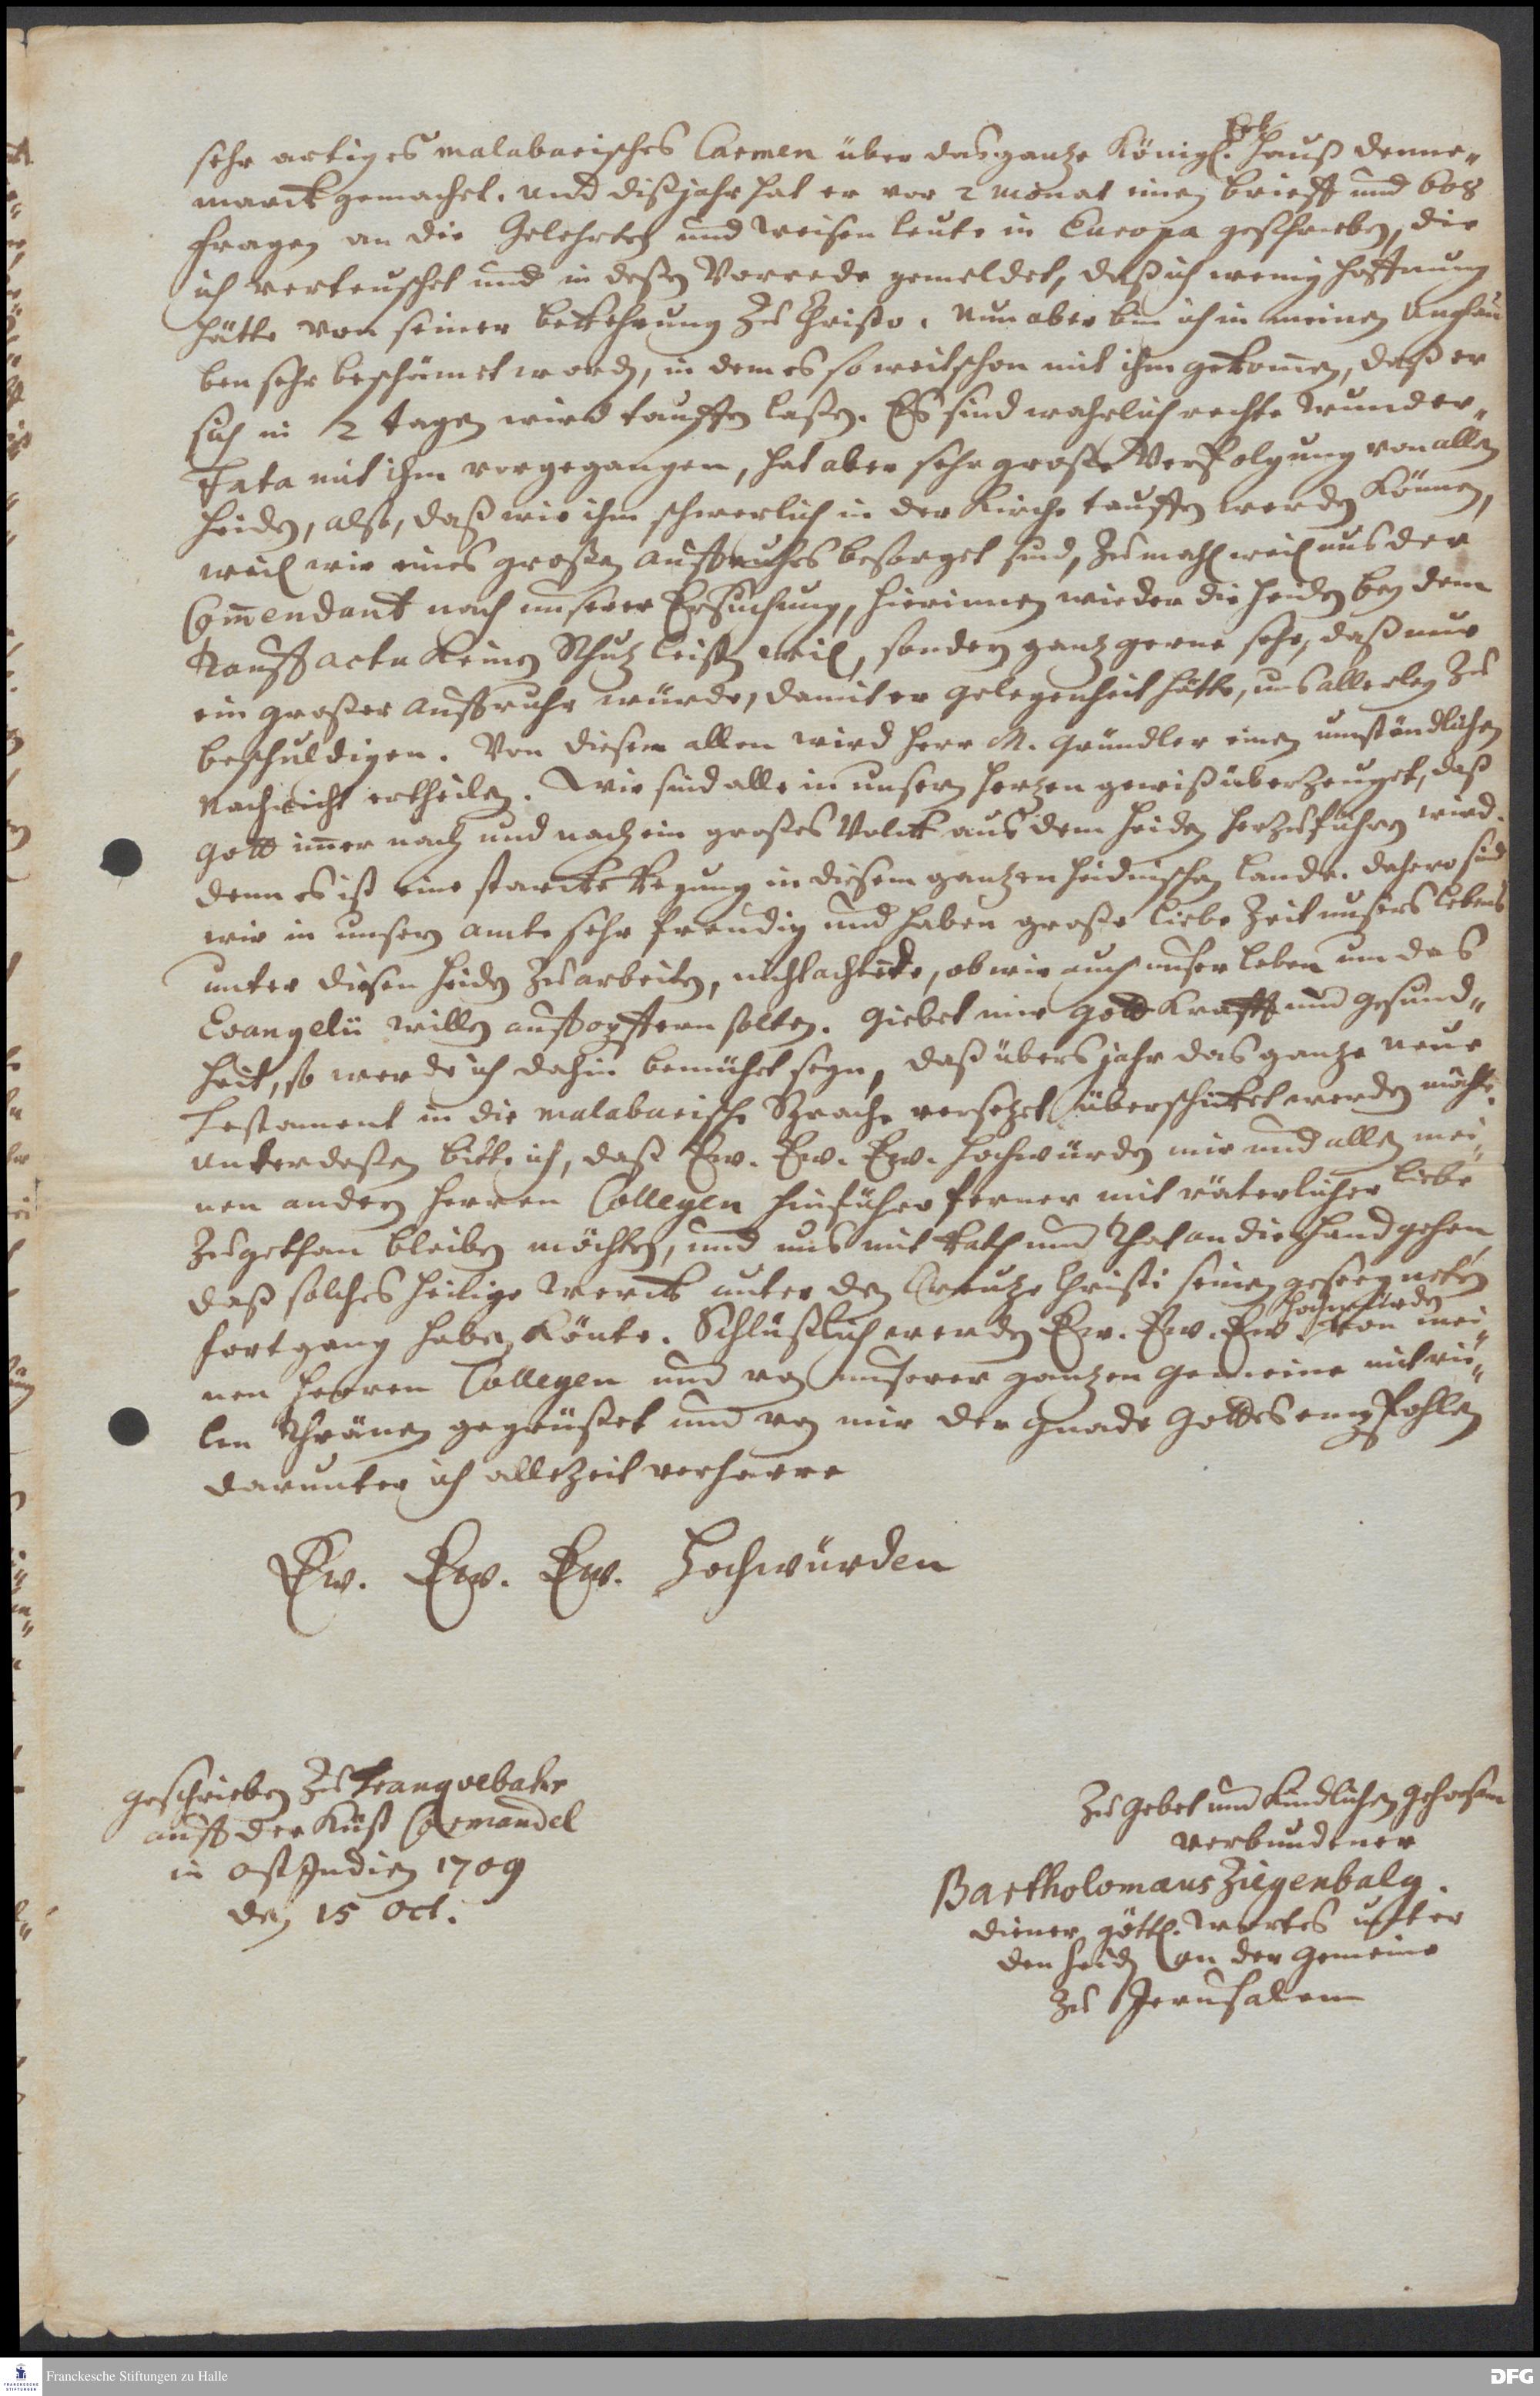 sehr artiges malabarisches Carmen über das gantze Königl. Erb
Hauß Denne-
marck gemachet. Und diß jahr hat er vor 2 Monat einen brieff und 608
fragen an die Gelehrten und weisen leute in Europa geschrieben, die
ich verteuschet und in deßen Vorrede gemeldet, daß ich wenig hoffnung
hätte von seiner bekehrung zu Christo. Nun aber bin ich in meinen Unglau-
ben sehr beschämet worden, in dem es so weit schon mit ihm gekommen, daß er
sich in 2 tagen wird tauffen laßen. Es sind wahrlich rechte Wunder-
Fata mit ihm vorgegangen, hat aber sehr große Verfolgung von allen
Heiden, also, daß wir ihn schwerlich in der Kirche tauffen werden können,
weil wir eines großen auffruhrs besorget sind, zumahl weil uns der
Commendant nach unserer Ersuchung, hierinnen wieder die Heiden bey dem
Tauff actu keinen Schutz leisten wil, sondern gantz gerne sehe, daß nur
ein großer auffruhr würde, damit er gelegenheit hätte, uns allerley zu
beschuldigen. Von diesem allen wird Herr M. Gründler einen umständlichen
Nachricht ertheilen. Wir sind alle in unsern hertzen gewiß überzeuget, daß
Gott immer nach und nach ein großes Volck aus den Heiden herzuführen wird.
denn es ist eine starcke Regung in diesem gantzen heidnischen lande. dahero sind
wir in unsern amte sehr freudig und haben große liebe Zeit unsers lebens
unter diesen Heiden zu arbeiten, nicht achtende, ob wir auch unser leben um das
Evangelii willen auffopffern solten. Giebet mir Gott Krafft und gesund-
heit, so werde ich dahin bemühet seyn, daß übers jahr das gantze Neue
Testament in die malabarische Sprache versetzet überschicket werden möchte.
Unterdeßen bitte ich, daß Ew. Ew. Ew. Hochwürden mir und allen mei-
nen andern Herren Collegen hinführo ferner mit väterlicher liebe
zugethan bleiben möchten, und uns mit Rath und That an die Hand gehen,
daß solches heilige Werck unter den Creutze Christi seinen geseegneten
fortgang haben könte. Schlüßlich werden Ew. Ew. Ew. Hochwürden von mei-
nen Herren Collegen und von unserer gantzen Gemeine mit vie-
len Thränen gegrüßet und von mir der Gnade Gottes empfohlen
darunter ich allezeit verharre
Ew. Ew. Ew. Hochwürden
geschrieben zu Tranquebahr
auff der Küst Cormandel
in Ost Indien 1709
den 15 Oct.
Zu Gebet und kindlichen gehorsam
verbundener
Bartholomäus Ziegenbalg.
diener göttl. Wortes unter
den Heiden an der Gemeine
zu Jerusalem
Franckesche Stiftungen zu Halle
DFG